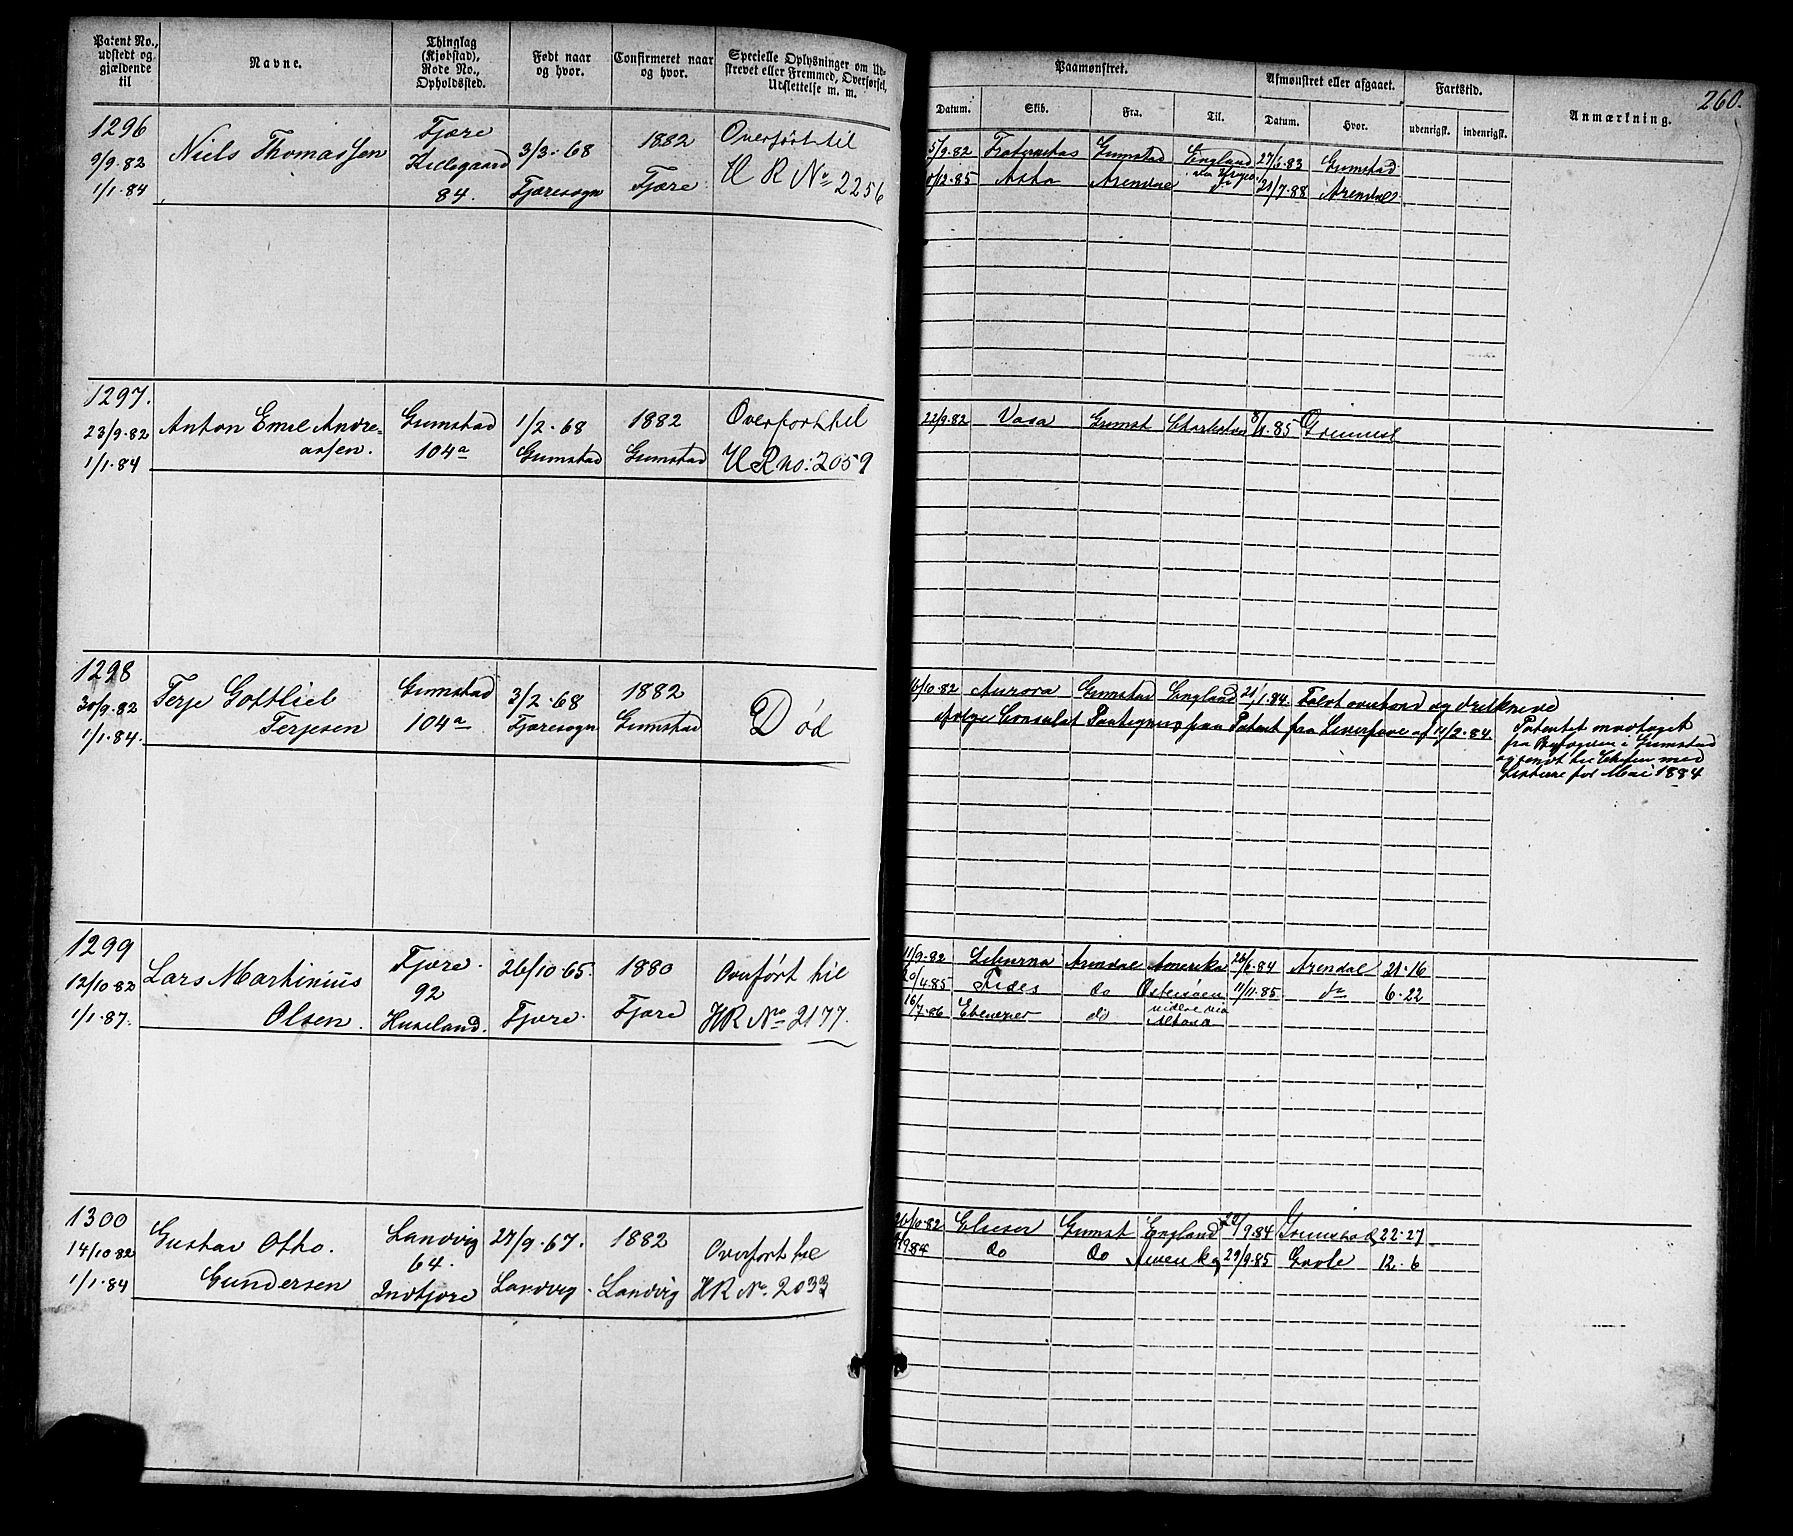 260.
Patent No., udstedt og gjældende til
Navne.
Thinglag (Kjøbstad), Rode No., Opholdssted.
Født naar og hvor.
Confirmeret naar og hvor.
Specielle Oplysninger om Udskrevet eller Fremmed, Overførsel, Udslettelse m. m.
Paamønstret.
Afmønstret eller afgaaet.
Fartstid.
Anmærkning.
Datum.
Skib.
Fra.
Til.
Datum.
Hvor.
udenrigsk.
indenrigsk.
1296
9/9.82
1/1.84
Niels Thomassen
Fjære
Killegaard
84.
3/3.68
Fjæresogn
1882
Fjære
Overført til
H R No 2256
5/9.82 Fraternitas Grimstad England 27/6.83 Grimstad
/12.85 Asta Arendal do 21/7.88 Arendal
1297.
23/9.82
1/1.84
Anton Emil Andre=
assen.
Grimstad
104a
1/2.68
Grimstad
1882
Grimstad
Overført til
H R no: 2059
22/9.82 Vasa Grimst Charleston 8/ .85 Grimst
1298
30/9.82
1/1.84.
Terje Gottlieb
Terjesen
Grimstad
104a
3/2.68
Fjæresogn
1882
Grimstad
Død
16/10.82 Aurora Grimstad England 21/1.84 Faldt overbord og druknede
ifølge Consulat Paategning paa Patent fra Liverpool af 11/2.84.
Patentet modtaget
fra Byfogden i Grimstad
og sendt til Chefen med
Listerne for Mai 1884
1299
12/10.82
1/1.87.
Lars Martinius
Olsen.
Fjære.
92
Huseland.
26/10.65.
Fjære.
1880
Fjære
Overført til
HR No 2177.
11/9.82 Liburna Arendal Amerika 26/6.84 Arendal 21.16
20/4.85 Fides do Østersøen 11/11.85 do 6.22
16/7.86 Ebenezer do videre via
Altona
1300
14/10.82
1/1.84
Gustav Otto.
Gundersen
Landvig
64.
Indfjære
27/9.67.
Landvig.
1882
Landvig
Overført til
HR No. 2033
26/10.82 Elieser Grimst England 22/9.84 Grimstad 22.27
/9.84 do do 29/9.85 Goole 12.6